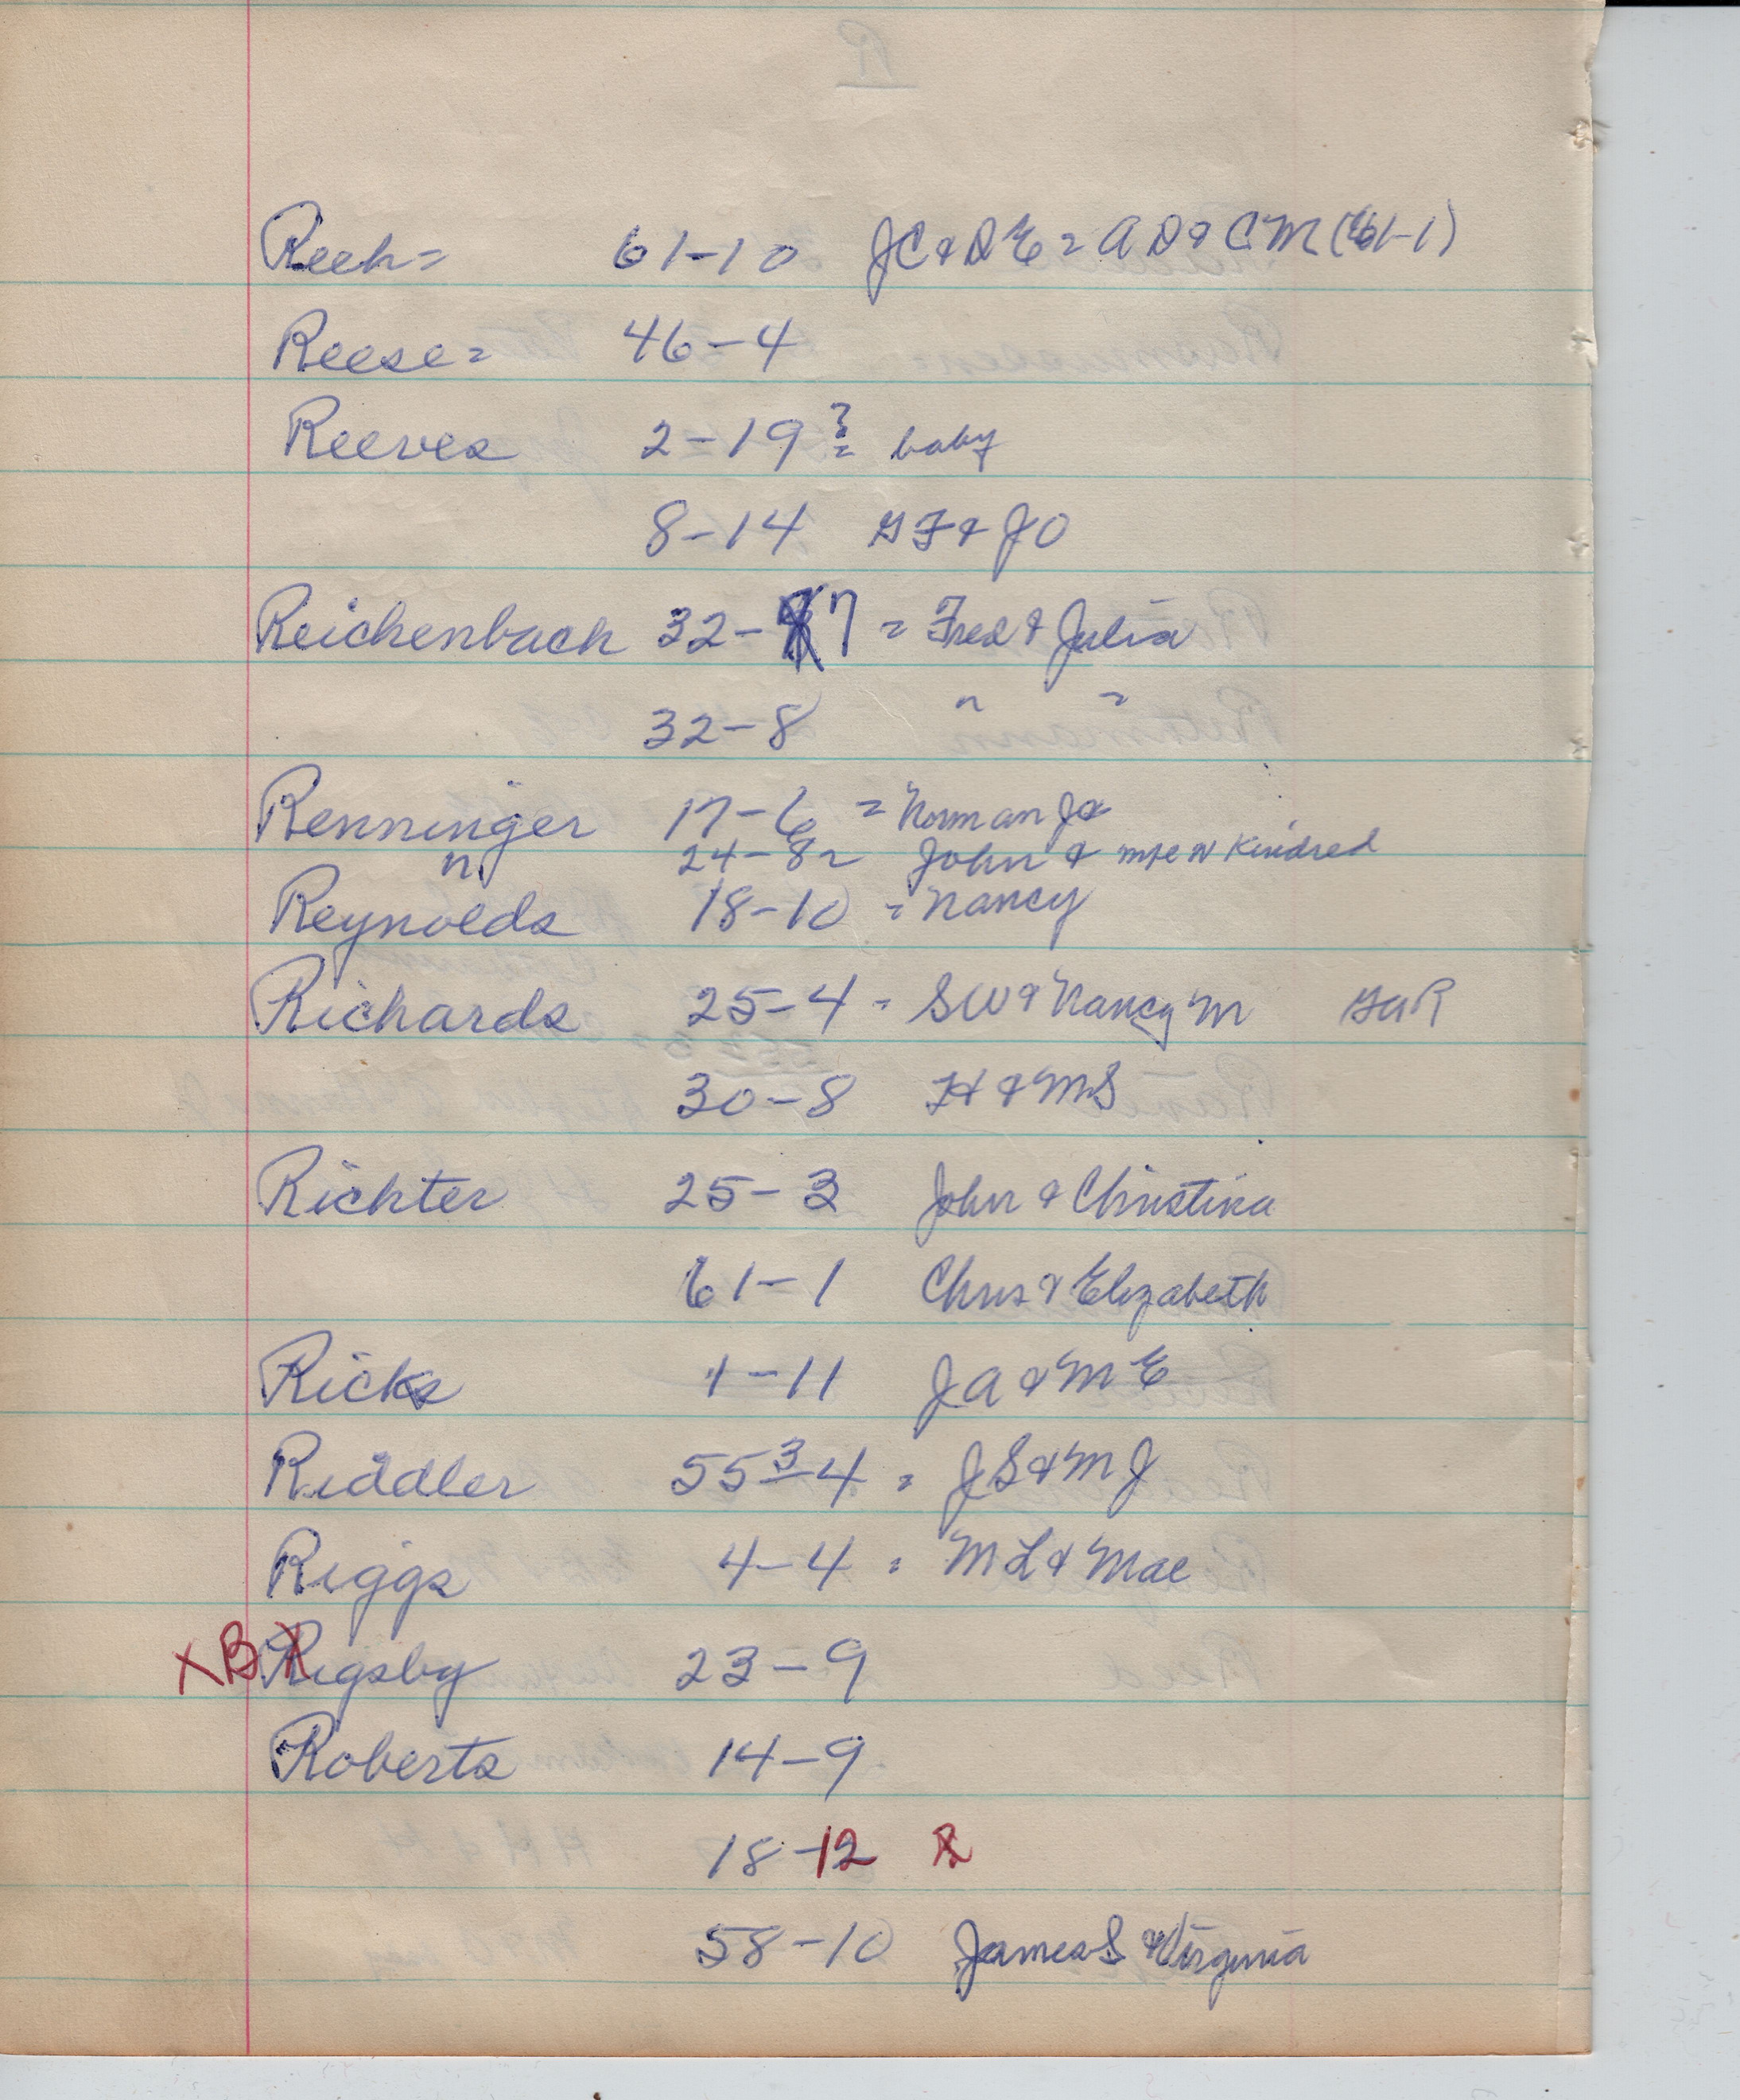 Reeh = 61-10 JC & DE = AD & CM (61-1)
Reese = 46-4
Reeves 2-19 ? = baby
8-14 GF & JO
Reichenbach 32-7 = Fred & Julia
32-8 " "
Renninger 17-6 = Norman Ja
" 24-8 = John & N Kindred
Reynolds 18-10 = Nancy
Richards 25-4 = SW & Nancy M GAR
30-8 H & MS
Richter 25-3 John & Christina
61-1 Chris & Elizabeth
Ricks 1-11 JA & ME
Riddler 55 3-4 = JS & MJ
Riggs 4-4 = ML & Mae
X B Rigsby 23-9
Roberts 14-9
18-12 R
58-10 James S & Virginia